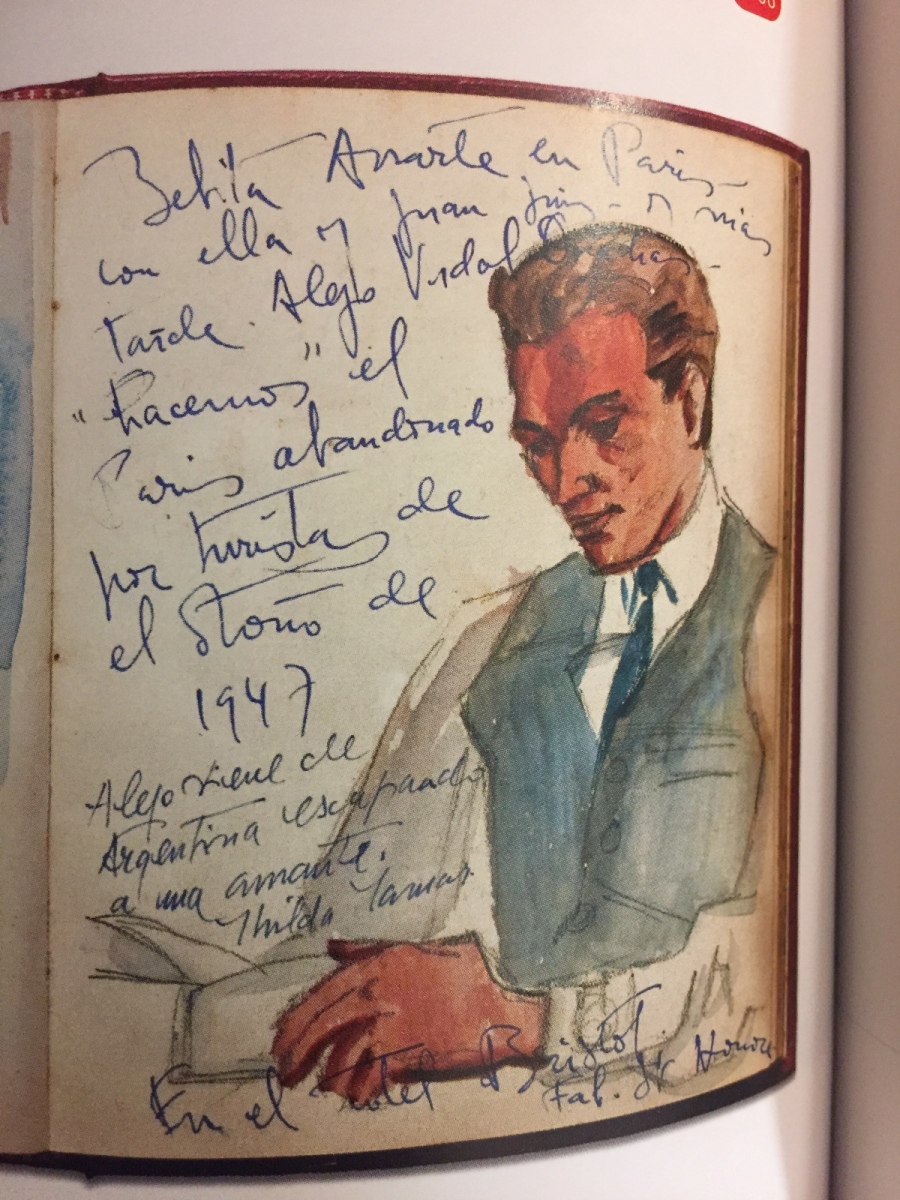 Bebita Anarte en Paris-
con ella y Juan - y más
tarde. Alejo Vidal Quadras-
"hacemos" el
Paris abandonado
por turistas de
el otoño de
1947
Alejo viene de
Argentina escapando
a una amante.
En el Hotel Bristol
Fab. St Honoré